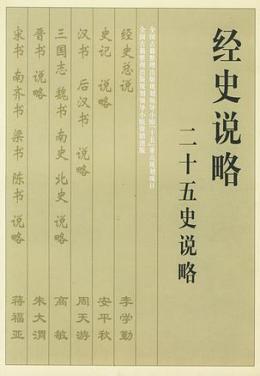 经史说略
二十五史说略
全国古籍整理出版规划领导小组“十五”重点规划项目
全国古籍整理出版规划领导小组资助出版
经史总说 李学勤
史记 说略 安平秋
汉书 后汉书 说略 周天游
三国志 魏书 南史 北史 说略 高敏
晋书 说略 朱大渭
宋书 南齐书 梁书 陈书 说略 蒋福亚